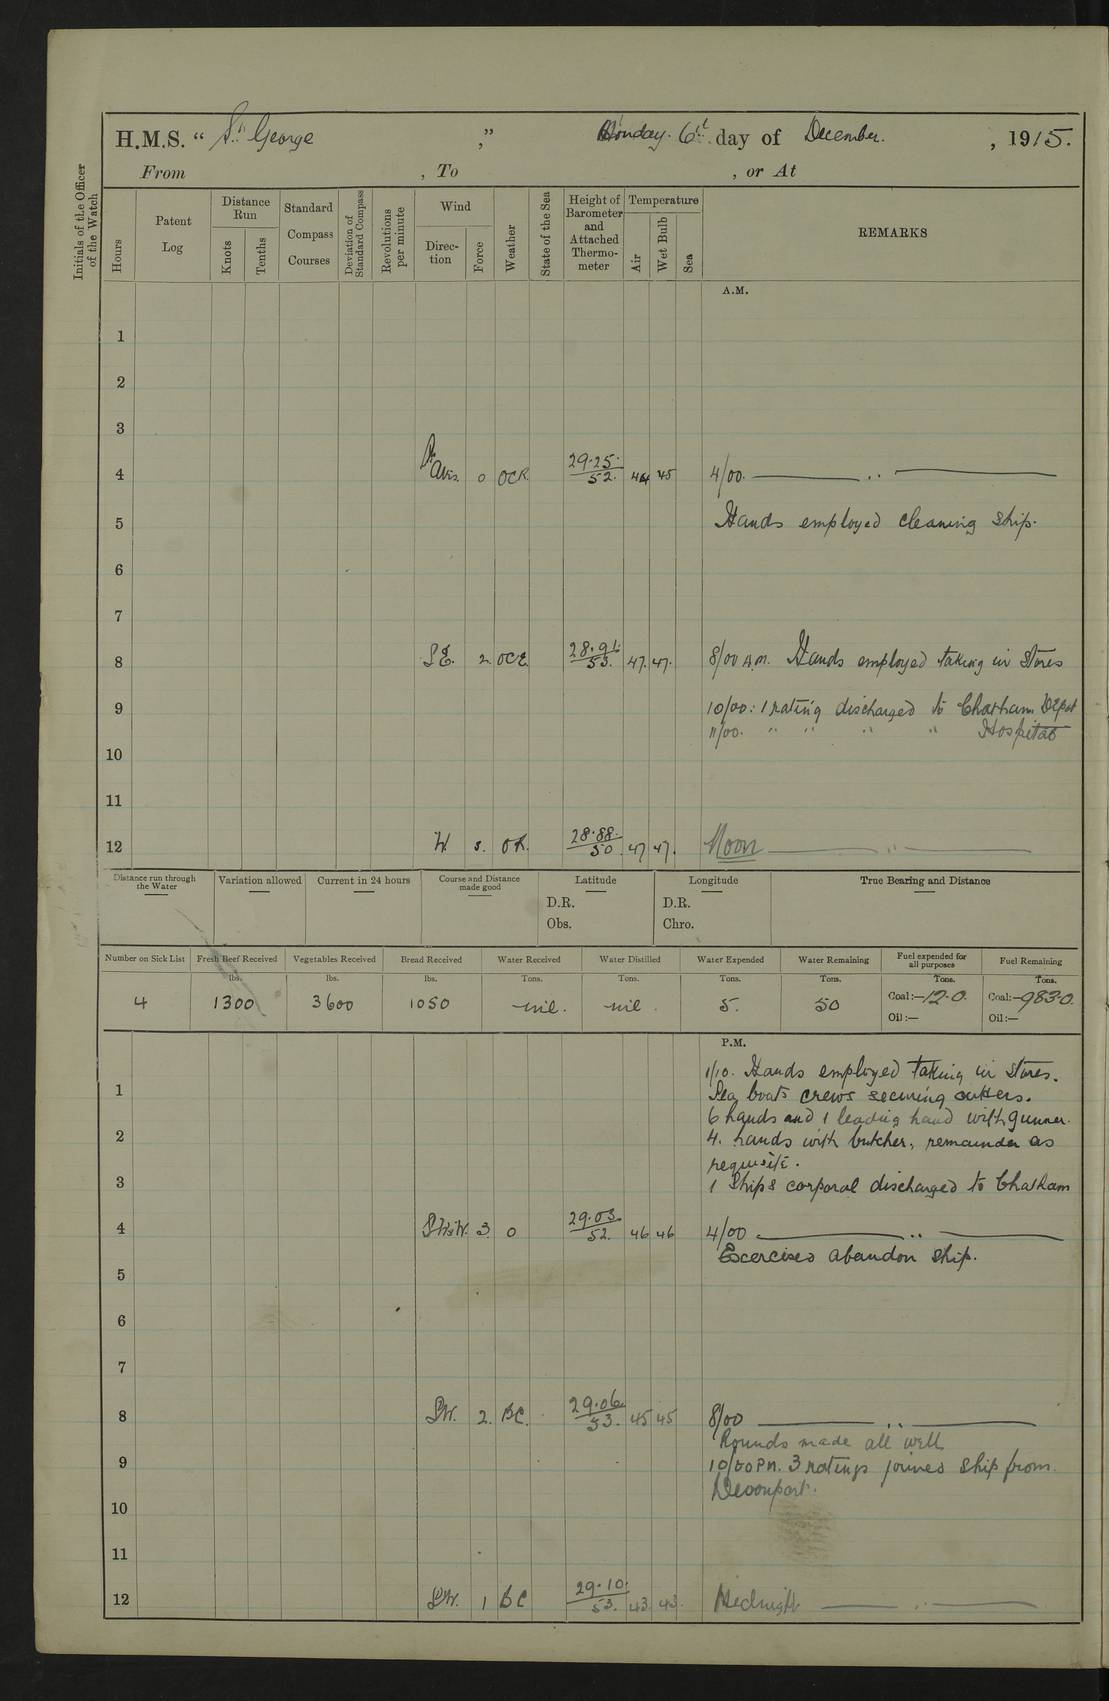 H.M.S. “ St. George ,” Monday 6th day of December , 1915.
From , To , or At
Initials of the Officer of the Watch
Hours
Patent Log
Distance Run
Knots
Tenths
Standard Compass Courses
Deviation of Standard Compass
Revolutions per minute
Wind
Direc- tion
Force
Weather
State of the Sea
Height of Barometer and Attached Thermo- meter
Temperature
Air
Wet Bulb
Sea
REMARKS
A.M.
1
2
3
4 0 OCR. 29.25. 52. 44 45 4/00. ——— .. ———
5 Hands employed cleaning ship.
6
7
8 S.E. 2 28.91. 53. 47. 47. 8/00 A.M. Hands employed taking in Stores
9 10/00: 1 rating discharged to Chatham Depot
11/00. " " " " Hospital
10
11
12 W. OR. 28.88. 50. 47 47. Noon ——— " ———
Distance run through the Water
Variation allowed
Current in 24 hours
Course and Distance made good
Latitude
D.R.
Obs.
Longitude
D.R.
Chro.
True Bearing and Distance
Number on Sick List
Fresh Beef Received
Vegetables Received
Bread Received
Water Received
Water Distilled
Water Expended
Water Remaining
Fuel expended for all purposes
Fuel Remaining
lbs. lbs. lbs. Tons. Tons. Tons. Tons. Tons. Tons.
4 1300 3600 1050 nil. nil. 5. 50 Coal:—12.0. Coal:—983.0.
Oil:— Oil:—
P.M.
1/10. Hands employed taking in Stores.
1 Sea boats crews securing cutters.
6 hands and 1 leading hand with gunner.
2 4. hands with butcher, remainder as
requisite.
3 1 Ships corporal discharged to Chatham
4 3. 0 29.03. 52. 46 46 4/00 ——— .. ———
Excercised abandon ship.
5
6
7
8 SW. 2. BC. 29.06. 53. 45 45 8/00 ——— .. ———
Rounds made all well
9 10/00 P.M. 3 ratings joined ship from
Devonport.
10
11
12 SW. 1 BC 29.10. 53. 43. 43. Midnight ——— .. ———